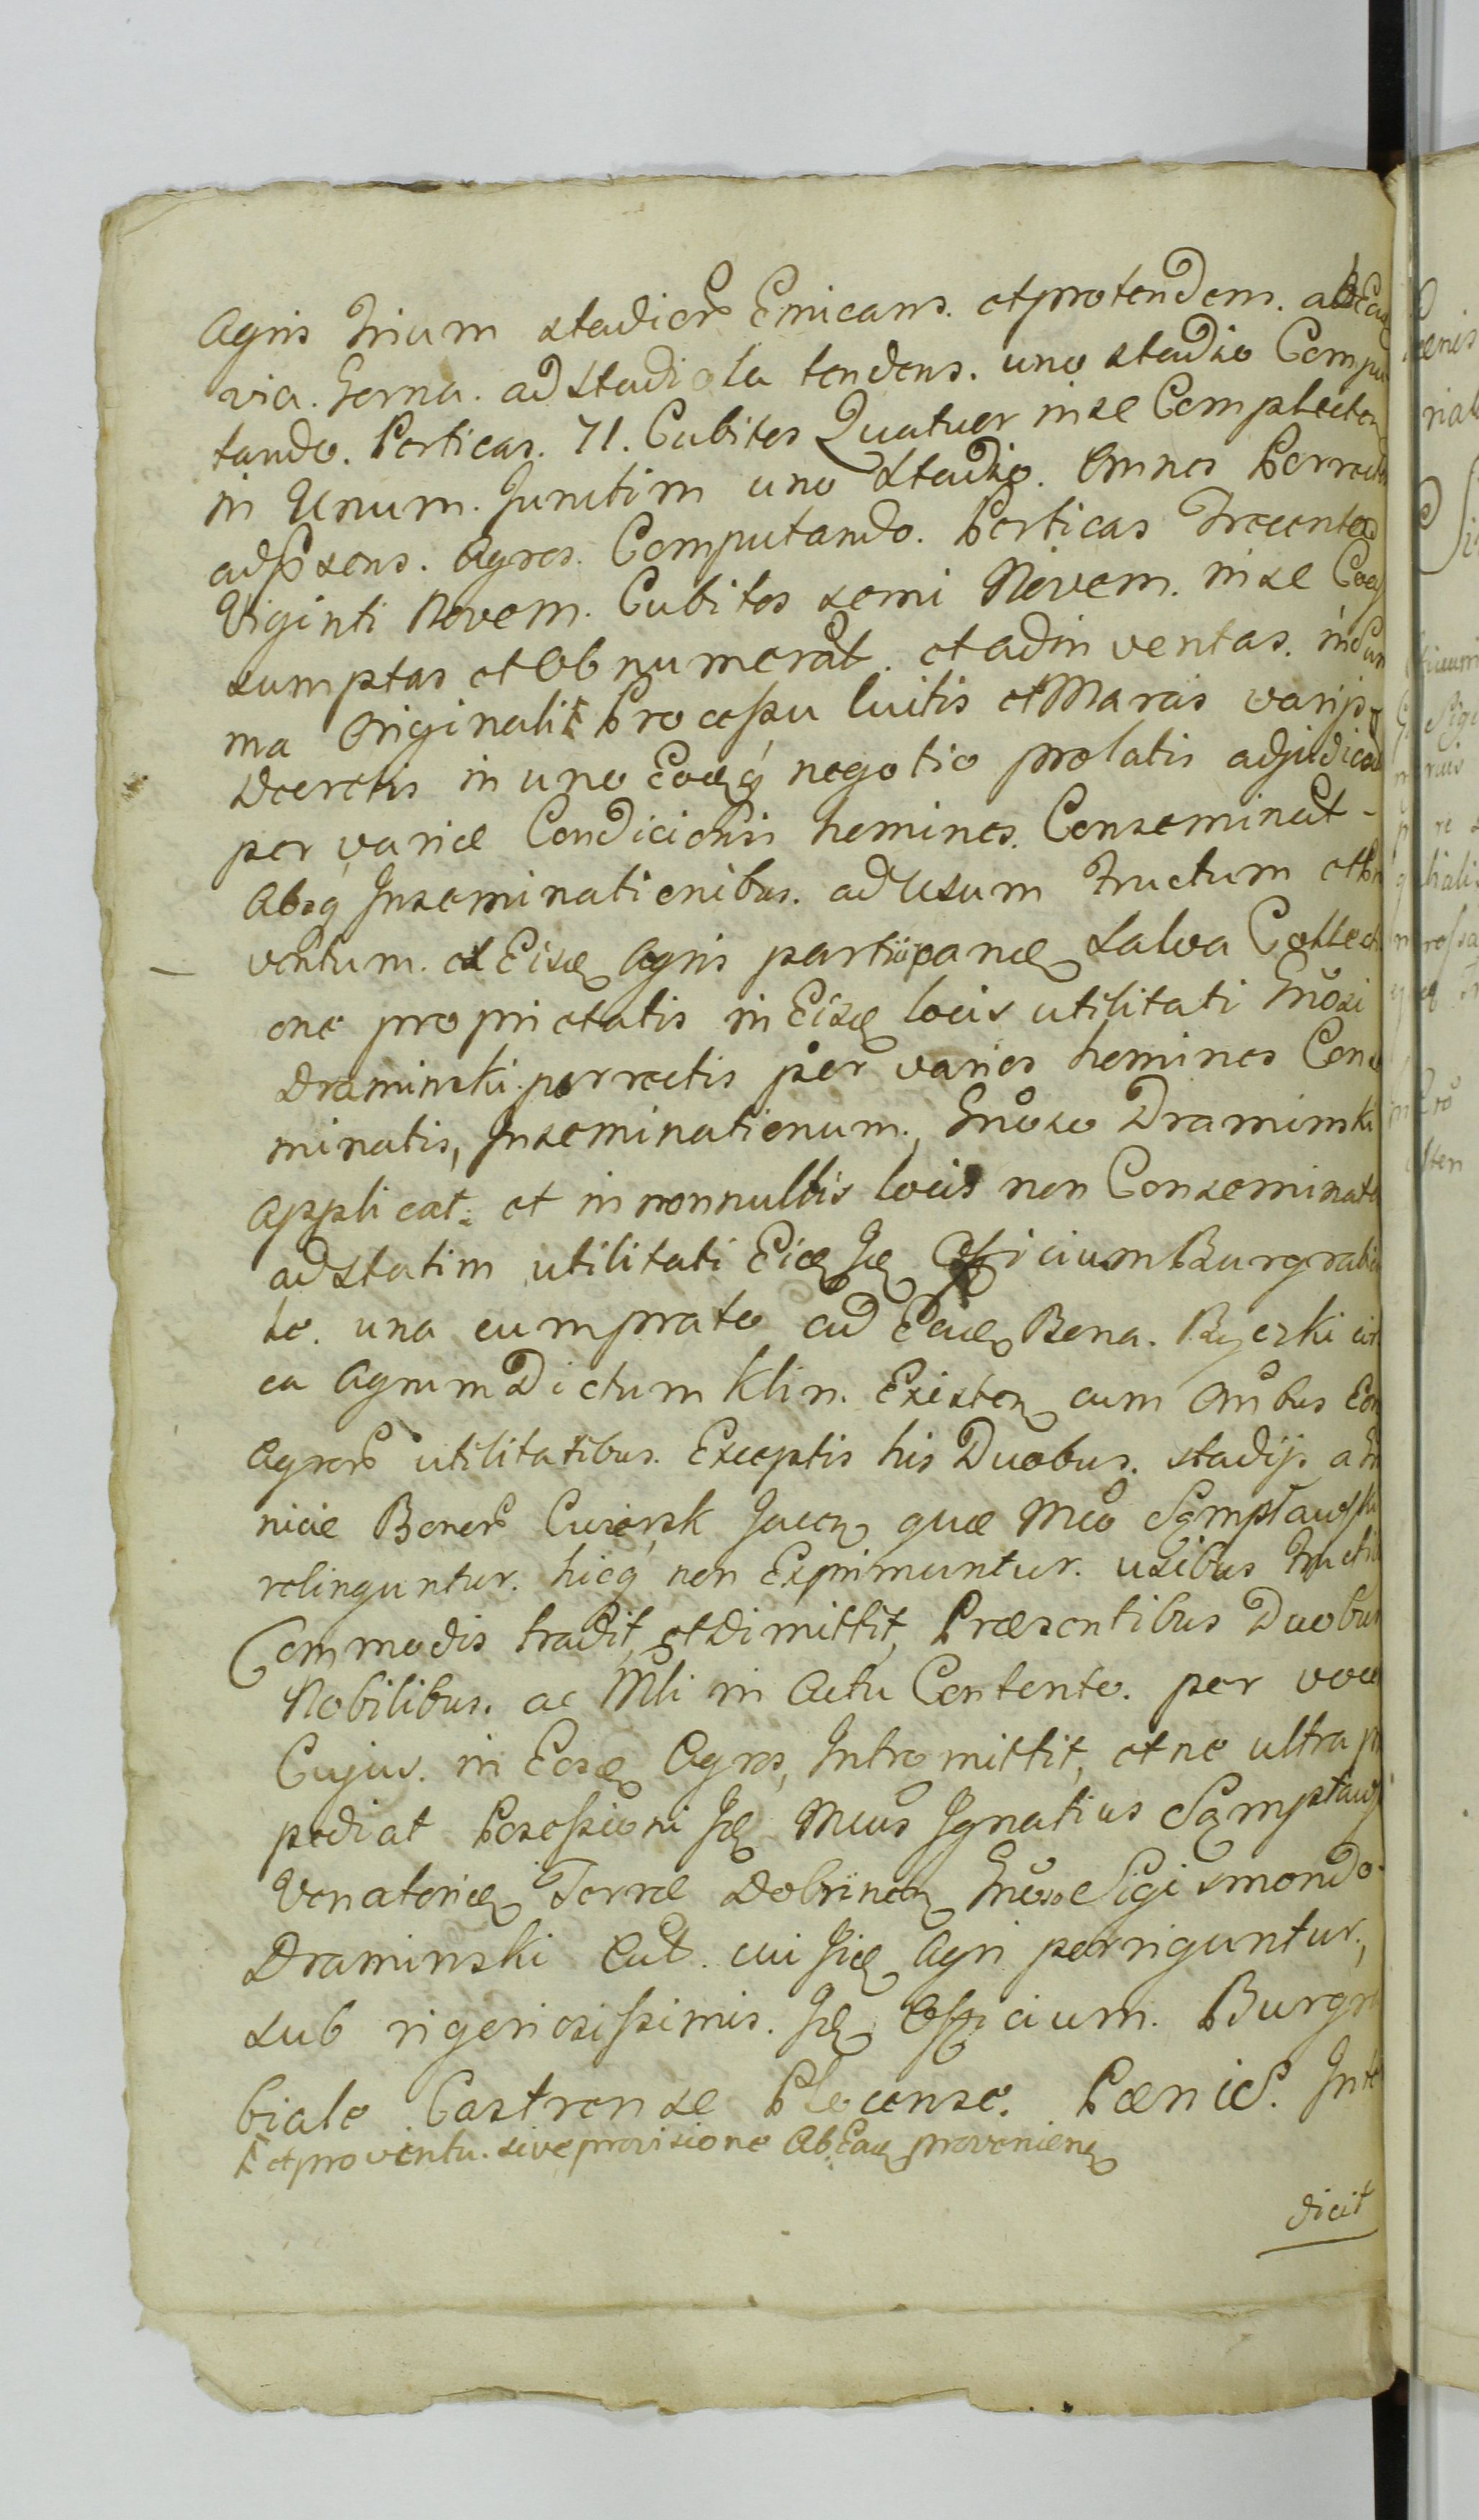 Agris Trium Stadior Emicans. et protendens. ab Ead
via. Gorna. ad Stadiola tendens. uno Stadio Compu
tando. Perticas. 71. Cubitos Quatuor in se Complecten
in Unum. Junctim uno Stadio. Omnes Porrect
ad Psens. Agros. Computando. Perticas Trecentas
Viginti Novem. Cubitos Semi Novem. in se Coas
sumptas et Obnumerat. et adinventas. in Sum
ma Originali Processu luitis et Maras varijs
Decretis in uno Eodq negotio prolatis adjudicat
per variæ Condicionis homines. Conseminat
Absq Inseminationibus. ad Usum Fructum et Pro
ventum. ex Eisd Agris participand Salva Collecti
one proprietatis in Eisd locis utilitati Gnosi
Draminski. porrectis per varios homines Conse
minatis, Inseminationum. Gnoso Draminski
Applicat. et in nonnullis locis non Conseminatis
ad Statim utilitati Eid Id Officium Burgrabia
le. una cum prato ad Ead Bona. Rycrki cir
ca Agrum Dictum Klin. Existen cum Omibus Eor
Agror utilitatibus. Exceptis his Duobus. Stadijs a Gra
nicie Bonor Cwiersk Jacen quæ Mco Sąmpławski
relinquntur. hicq non Exprimuntur. usibus fructib
Commodis tradit, et Dimittit, Præsentibus Duobus
Nobilibus. ac Mli in Actu Contento. per voce
Cujus. in Eosd Agros, Intromittit, et ne ultra præ
pediat Possessioni Id Mcus Ignatius Sąmpław
Venatorid Terræ Dobrinen Gnoso Sigismondo
Draminski Cut. cui Iid Agri porriguntur,
sub rigorosissimis. Id Officium. Burgra
biale Castrense Plocense. Pænis. Inte
et proventu. sive provisione Ab Ead provenien
dicit